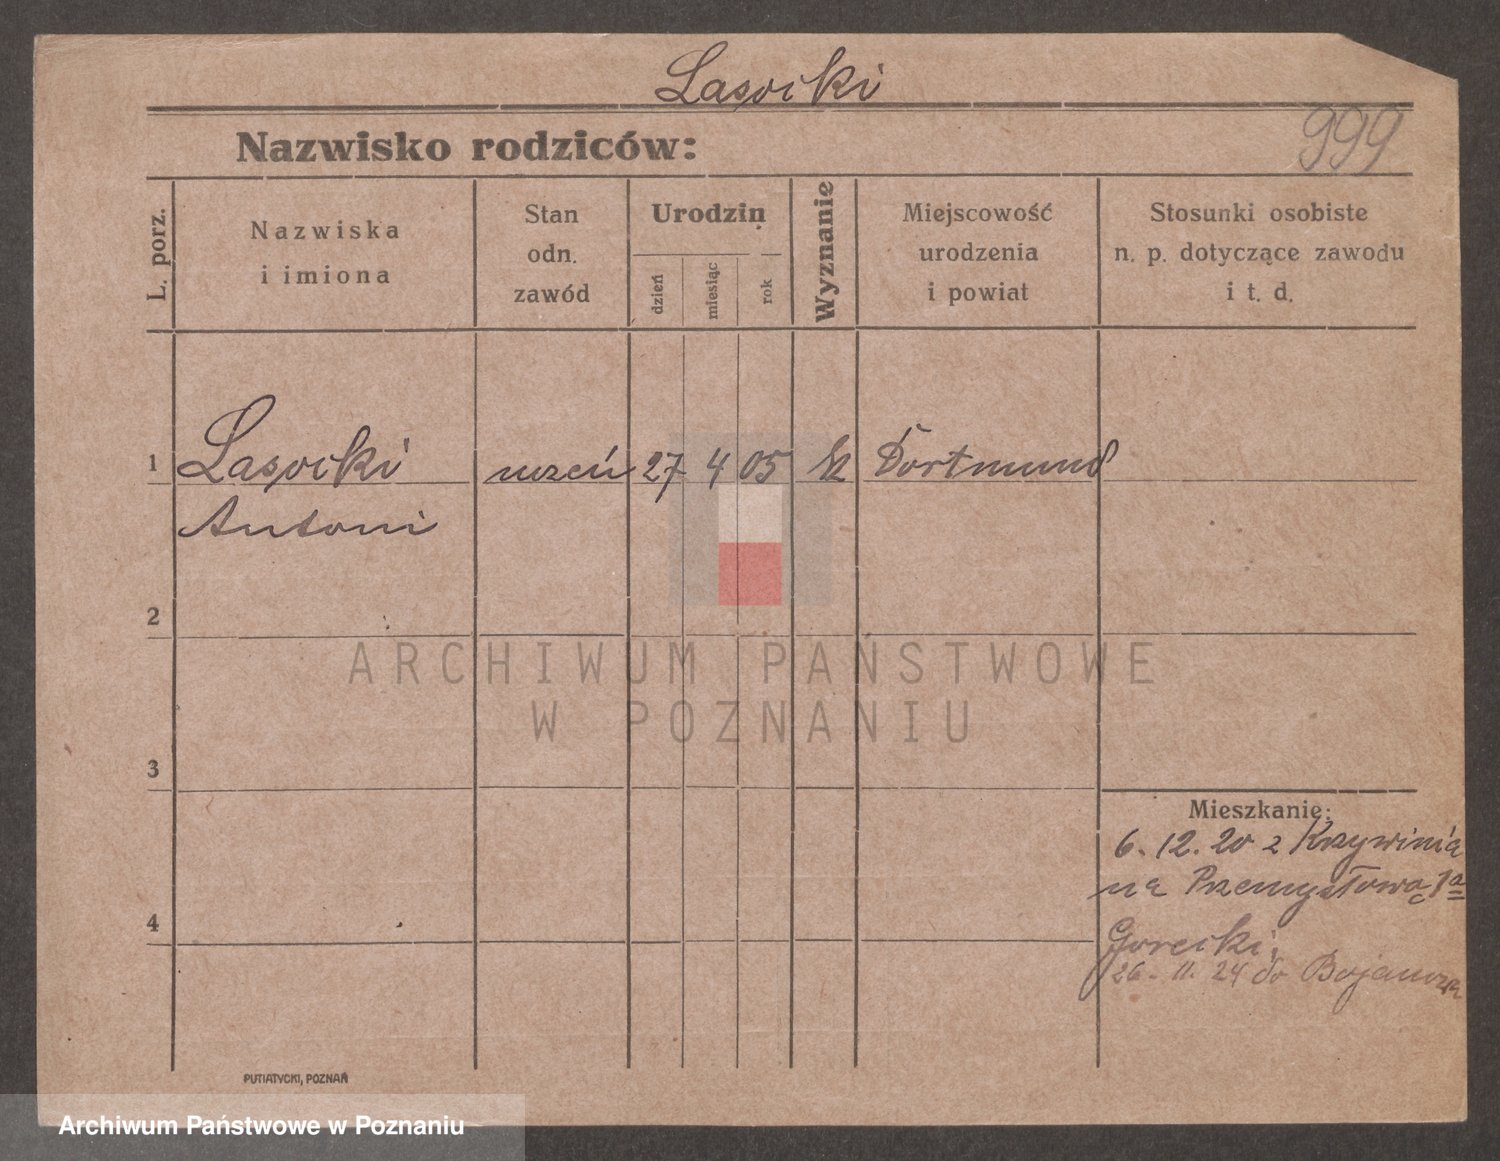 Lasocki
999
Nazwisko rodziców:
L. porz.
Nazwiska
i imiona
Stan
odn.
zawód
Urodzin
dzień
miesiąc
rok
Wyznanie
Miejscowość
urodzenia
i powiat
Stosunki osobiste
n. p. dotyczące zawodu
i t. d.
1 Lasocki uczeń 27 4 05 Dortmund
Antoni
2
3
4
Mieszkanie:
6. 12. 20 z Krzywinia
na Przemysłową 1a
Gorecki.
26. 11. 24 do Bojanowa
PUTIATYCKI, POZNAŃ
ARCHIWUM PAŃSTWOWE
W POZNANIU
Archiwum Państwowe w Poznaniu